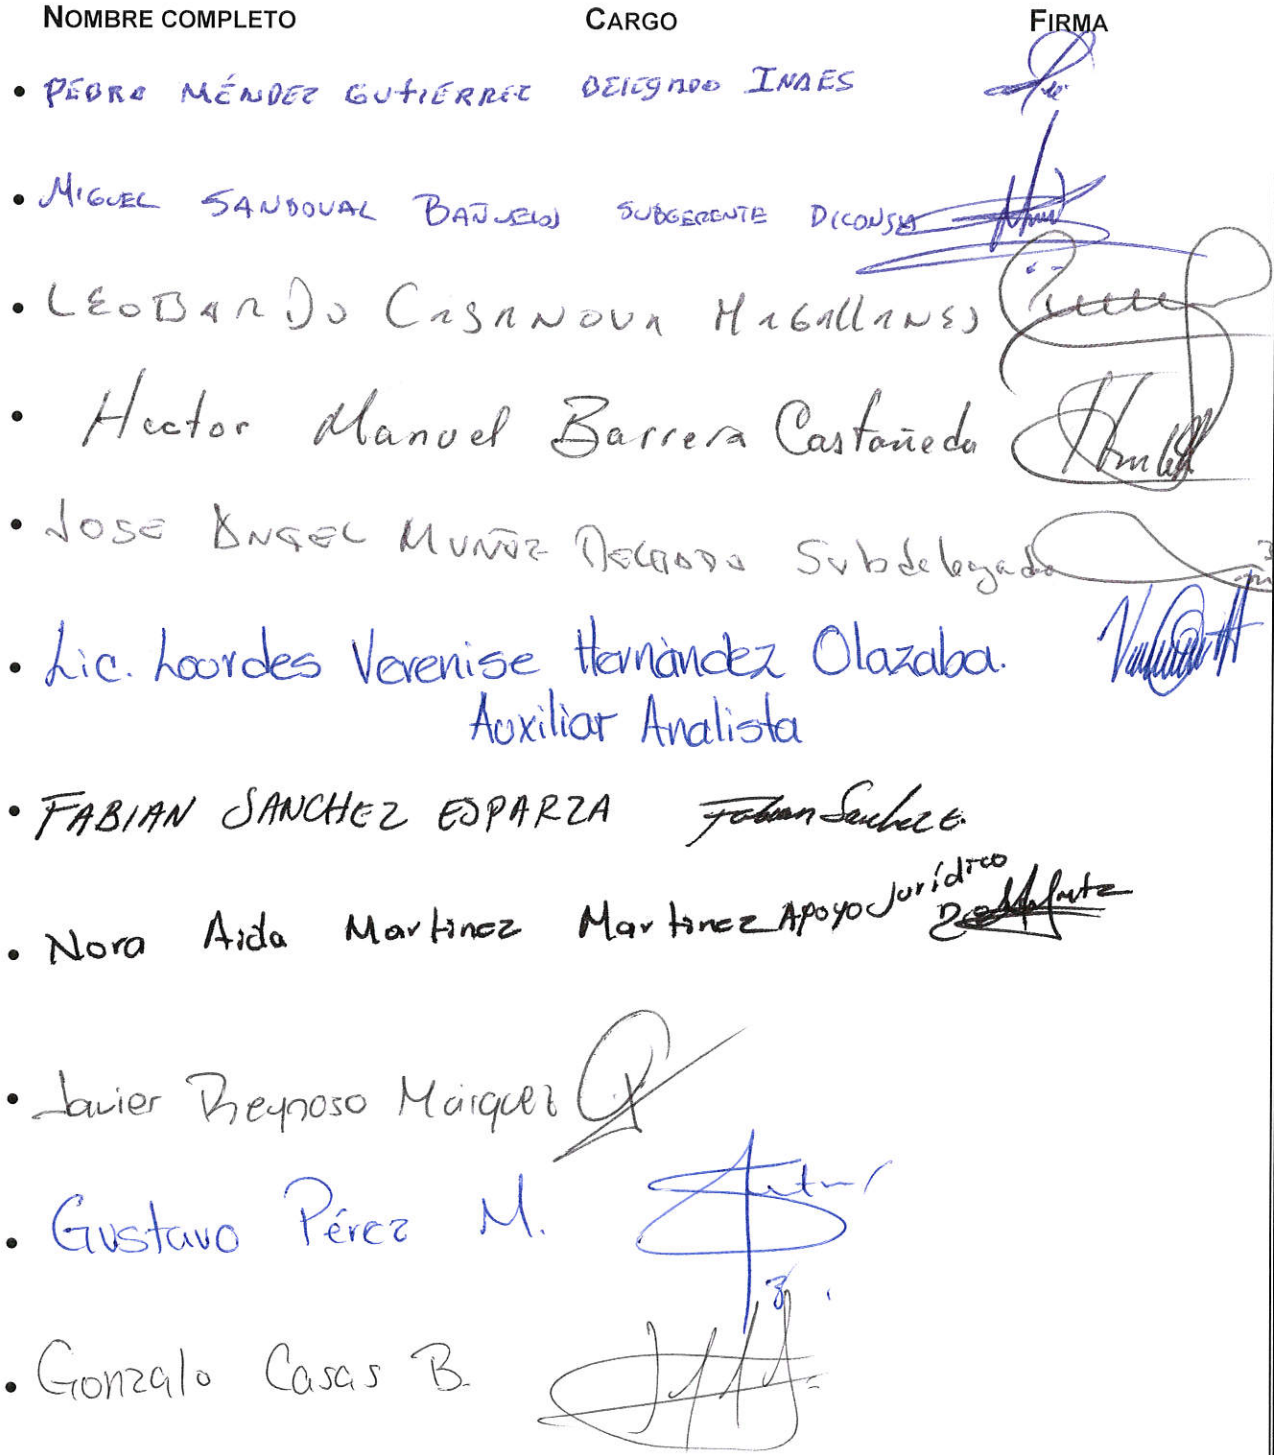 NOMBRE COMPLETO CARGO FIRMA
• PEDRO MÉNDEZ GUTIÉRREZ DELEGADO INAES
• MIGUEL SANDOVAL BAÑUELOS SUBGERENTE DICONSA
• LEOBARDO CASANOVA MAGALLANES
• Hector Manuel Barrera Castañeda
• JOSE ANGEL MUÑOZ DELGADO Subdelegado
• Lic. Lourdes Verenise Hernández Olazaba.
Auxiliar Analista
• FABIAN SANCHEZ ESPARZA Fabian Sanchez E.
• Nora Aida Martinez Martinez APOYO Jurídico
• Javier Reynoso Márquez
• Gustavo Pérez M.
• Gonzalo Casas B.